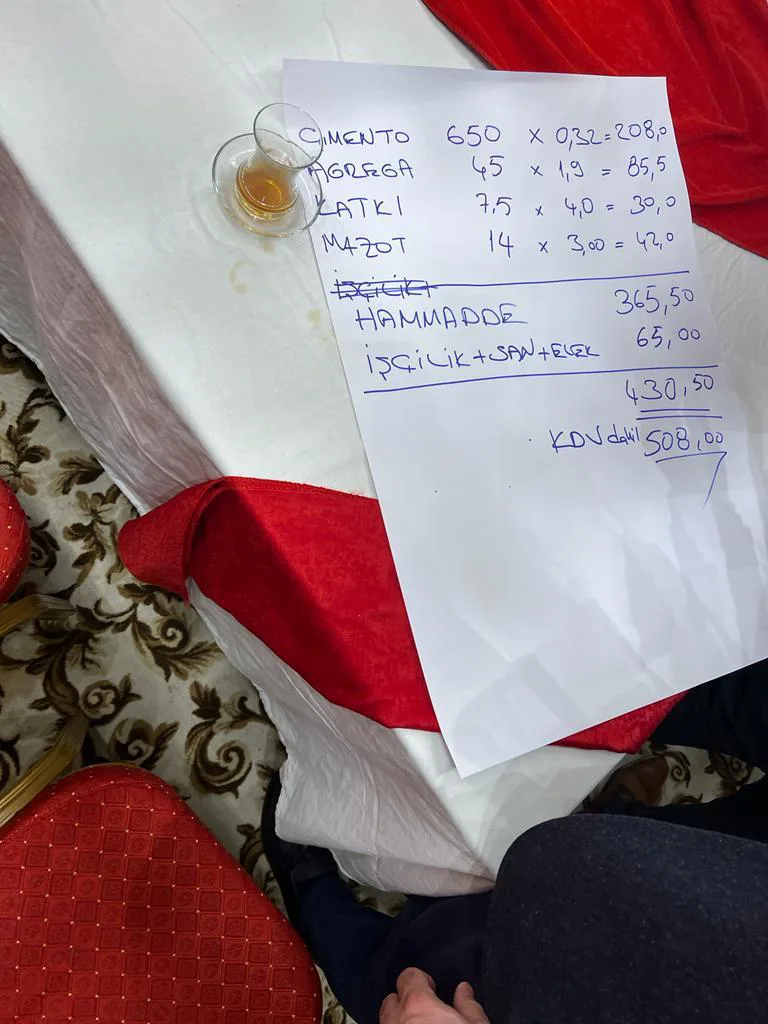 ÇİMENTO 650 x 0,32 = 208,0
AGREGA 45 x 1,9 = 85,5
KATKI 7,5 x 4,0 = 30,0
MAZOT 14 x 3,00 = 42,0
HAMMADDE 365,50
İŞÇİLİK + SAN + ELEK 65,00
430,50
KDV dahil 508,00